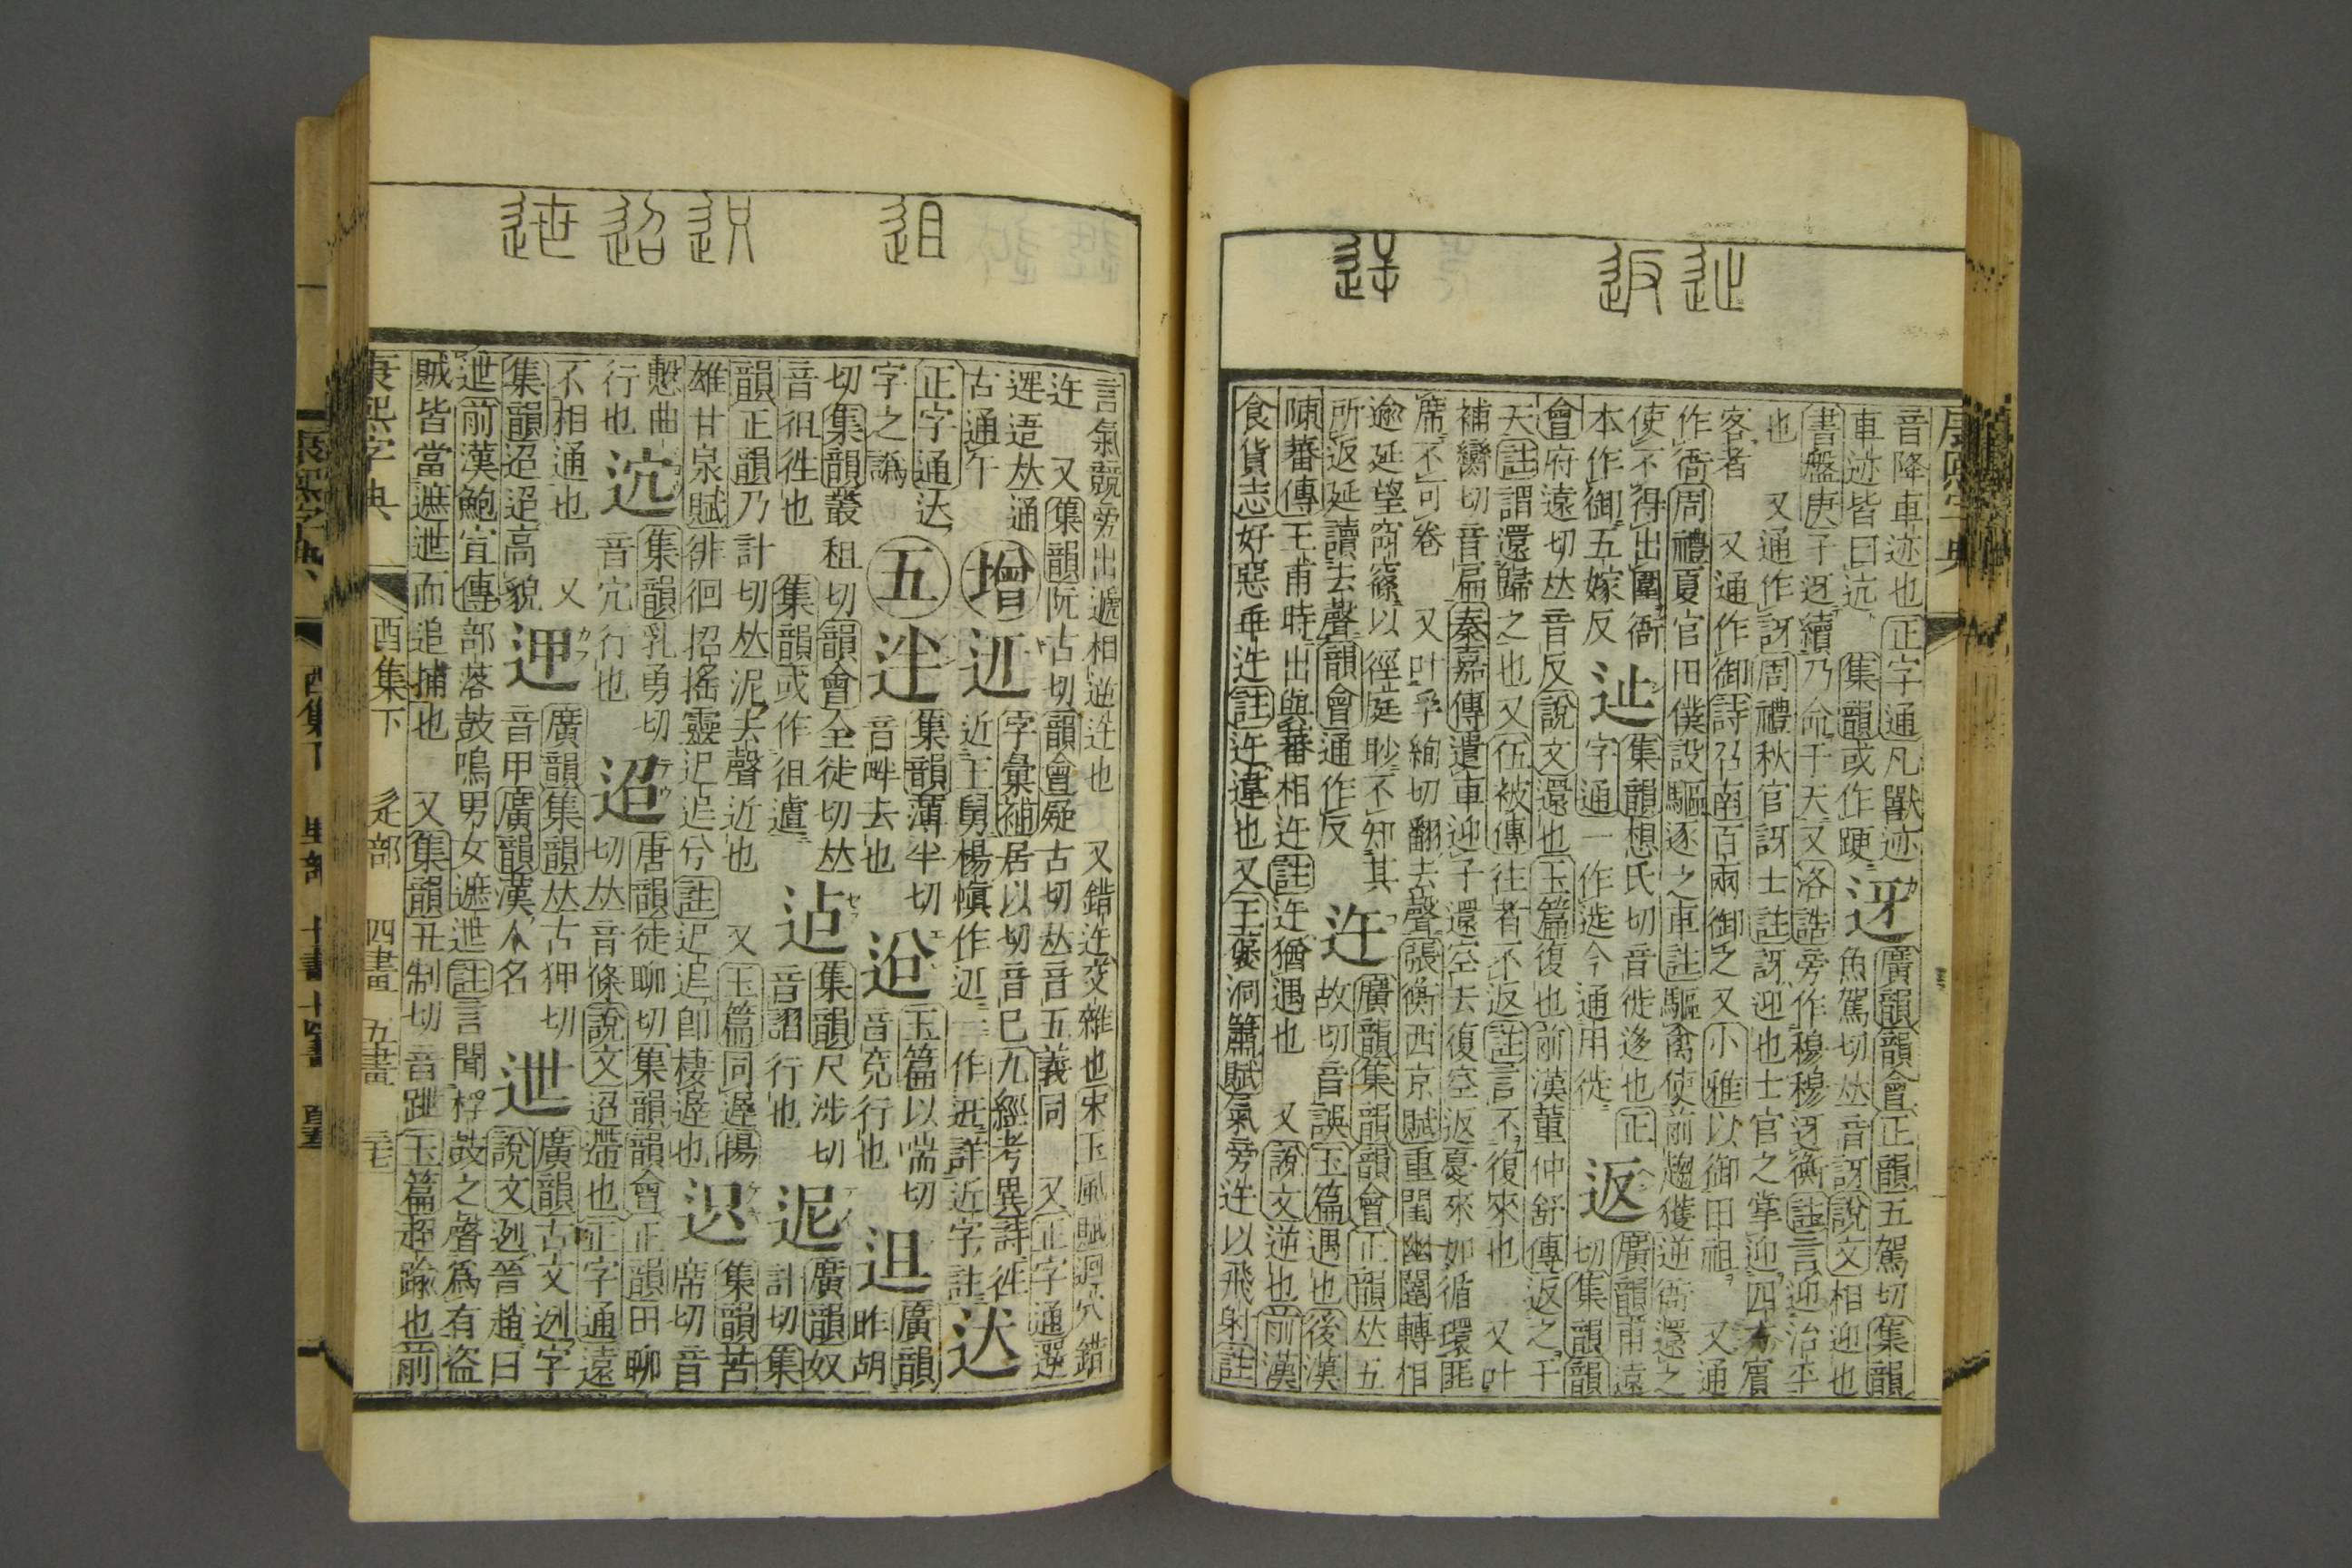 音降車迹也正字通凡獸迹
車迹皆曰迒集韻或作踁
迓
廣韻韻會正韻五駕切集韻
魚駕切𠀤音訝說文相迎也
書盤庚予迓續乃命于天又洛誥旁作穆穆迓衡註言迎治平
也 又通作訝周禮秋官訝士註訝迎也士官之掌迎四方賓
客者 又通作御詩召南百兩御之又小雅以御田祖 又通
作衙周禮夏官田僕設驅逐之車註驅禽使前趨獲逆衙還之
使不得出圍衙
本作御五嫁反
𨑭
集韻想氏切音徙迻也正
字通一作𨑭今通用徙
返
廣韻甫遠
切集韻韻
會府遠切𠀤音反說文還也玉篇復也前漢董仲舒傳返之于
天註謂還歸之也又伍被傳往者不返註言不復來也 又叶
補孌切音扁秦嘉傳遣車迎子還空去復空返憂來如循環匪
席不可卷 又叶孚絢切翻去聲張衡西京賦重閨幽闥轉相
逾延望窅窱以徑庭眇不知其
所返延讀去聲韻會通作反
迕
廣韻集韻韻會正韻𠀤五
故切音誤玉篇遇也後漢
陳蕃傳王甫時出與蕃相迕註迕猶遇也 又說文逆也前漢
食貨志好惡乖迕註迕違也又王褒洞簫賦氣旁迕以飛射註
言氣競旁出遞相逆迕也 又錯迕交雜也宋玉風賦迴穴錯
迕 又集韻阮古切韻會疑古切𠀤音五義同 又正字通遻
遌逜𠀤通
古通午
增
䢋
字彙補居以切音巳九經考異詩往
近王舅楊愼作䢋一作𨒋詳近字註
达
正字通达
字之譌
五
迣
集韻薄半切
音畔去也
㕣
玉篇以喘切
音兗行也
迌
廣韻昨胡
切集韻叢租切韻會全徒切𠀤
音徂徃也 集韻或作徂遽
迠
集韻尺涉切
音謵行也
迡
廣韻奴
計切集
韻正韻乃計切𠀤泥去聲近也 又玉篇同遲揚
雄甘泉賦徘徊招搖靈迟迡兮註迟迡卽棲遲也
迟
集韻苦
席切音
憩曲
行也
迒
集韻乳勇切
音宂行也
迢
唐韻徒聊切集韻韻會正韻田聊
切𠀤音條說文迢遰也正字通遠
不相通也 又
集韻迢迢高貌
𨒇
廣韻集韻𠀤古狎切
音甲廣韻漢人名
迣
廣韻古文迾字
說文迾晉趙曰
迣前漢鮑宣傳部落鼓鳴男女遮迣註言聞桴鼓之聲爲有盗
賊皆當遮迣而追捕也 又集韻丑制切音跇玉篇超踰也前
康熙字典
酉集下
辵部
四畫
五畫